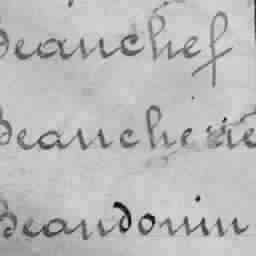 Beauchef
Beauchêne
Beaudouin